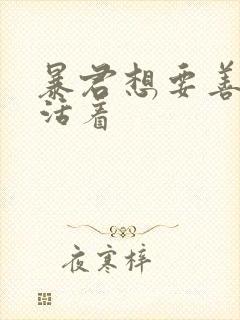 暴君想要善
活着
夜寒梓